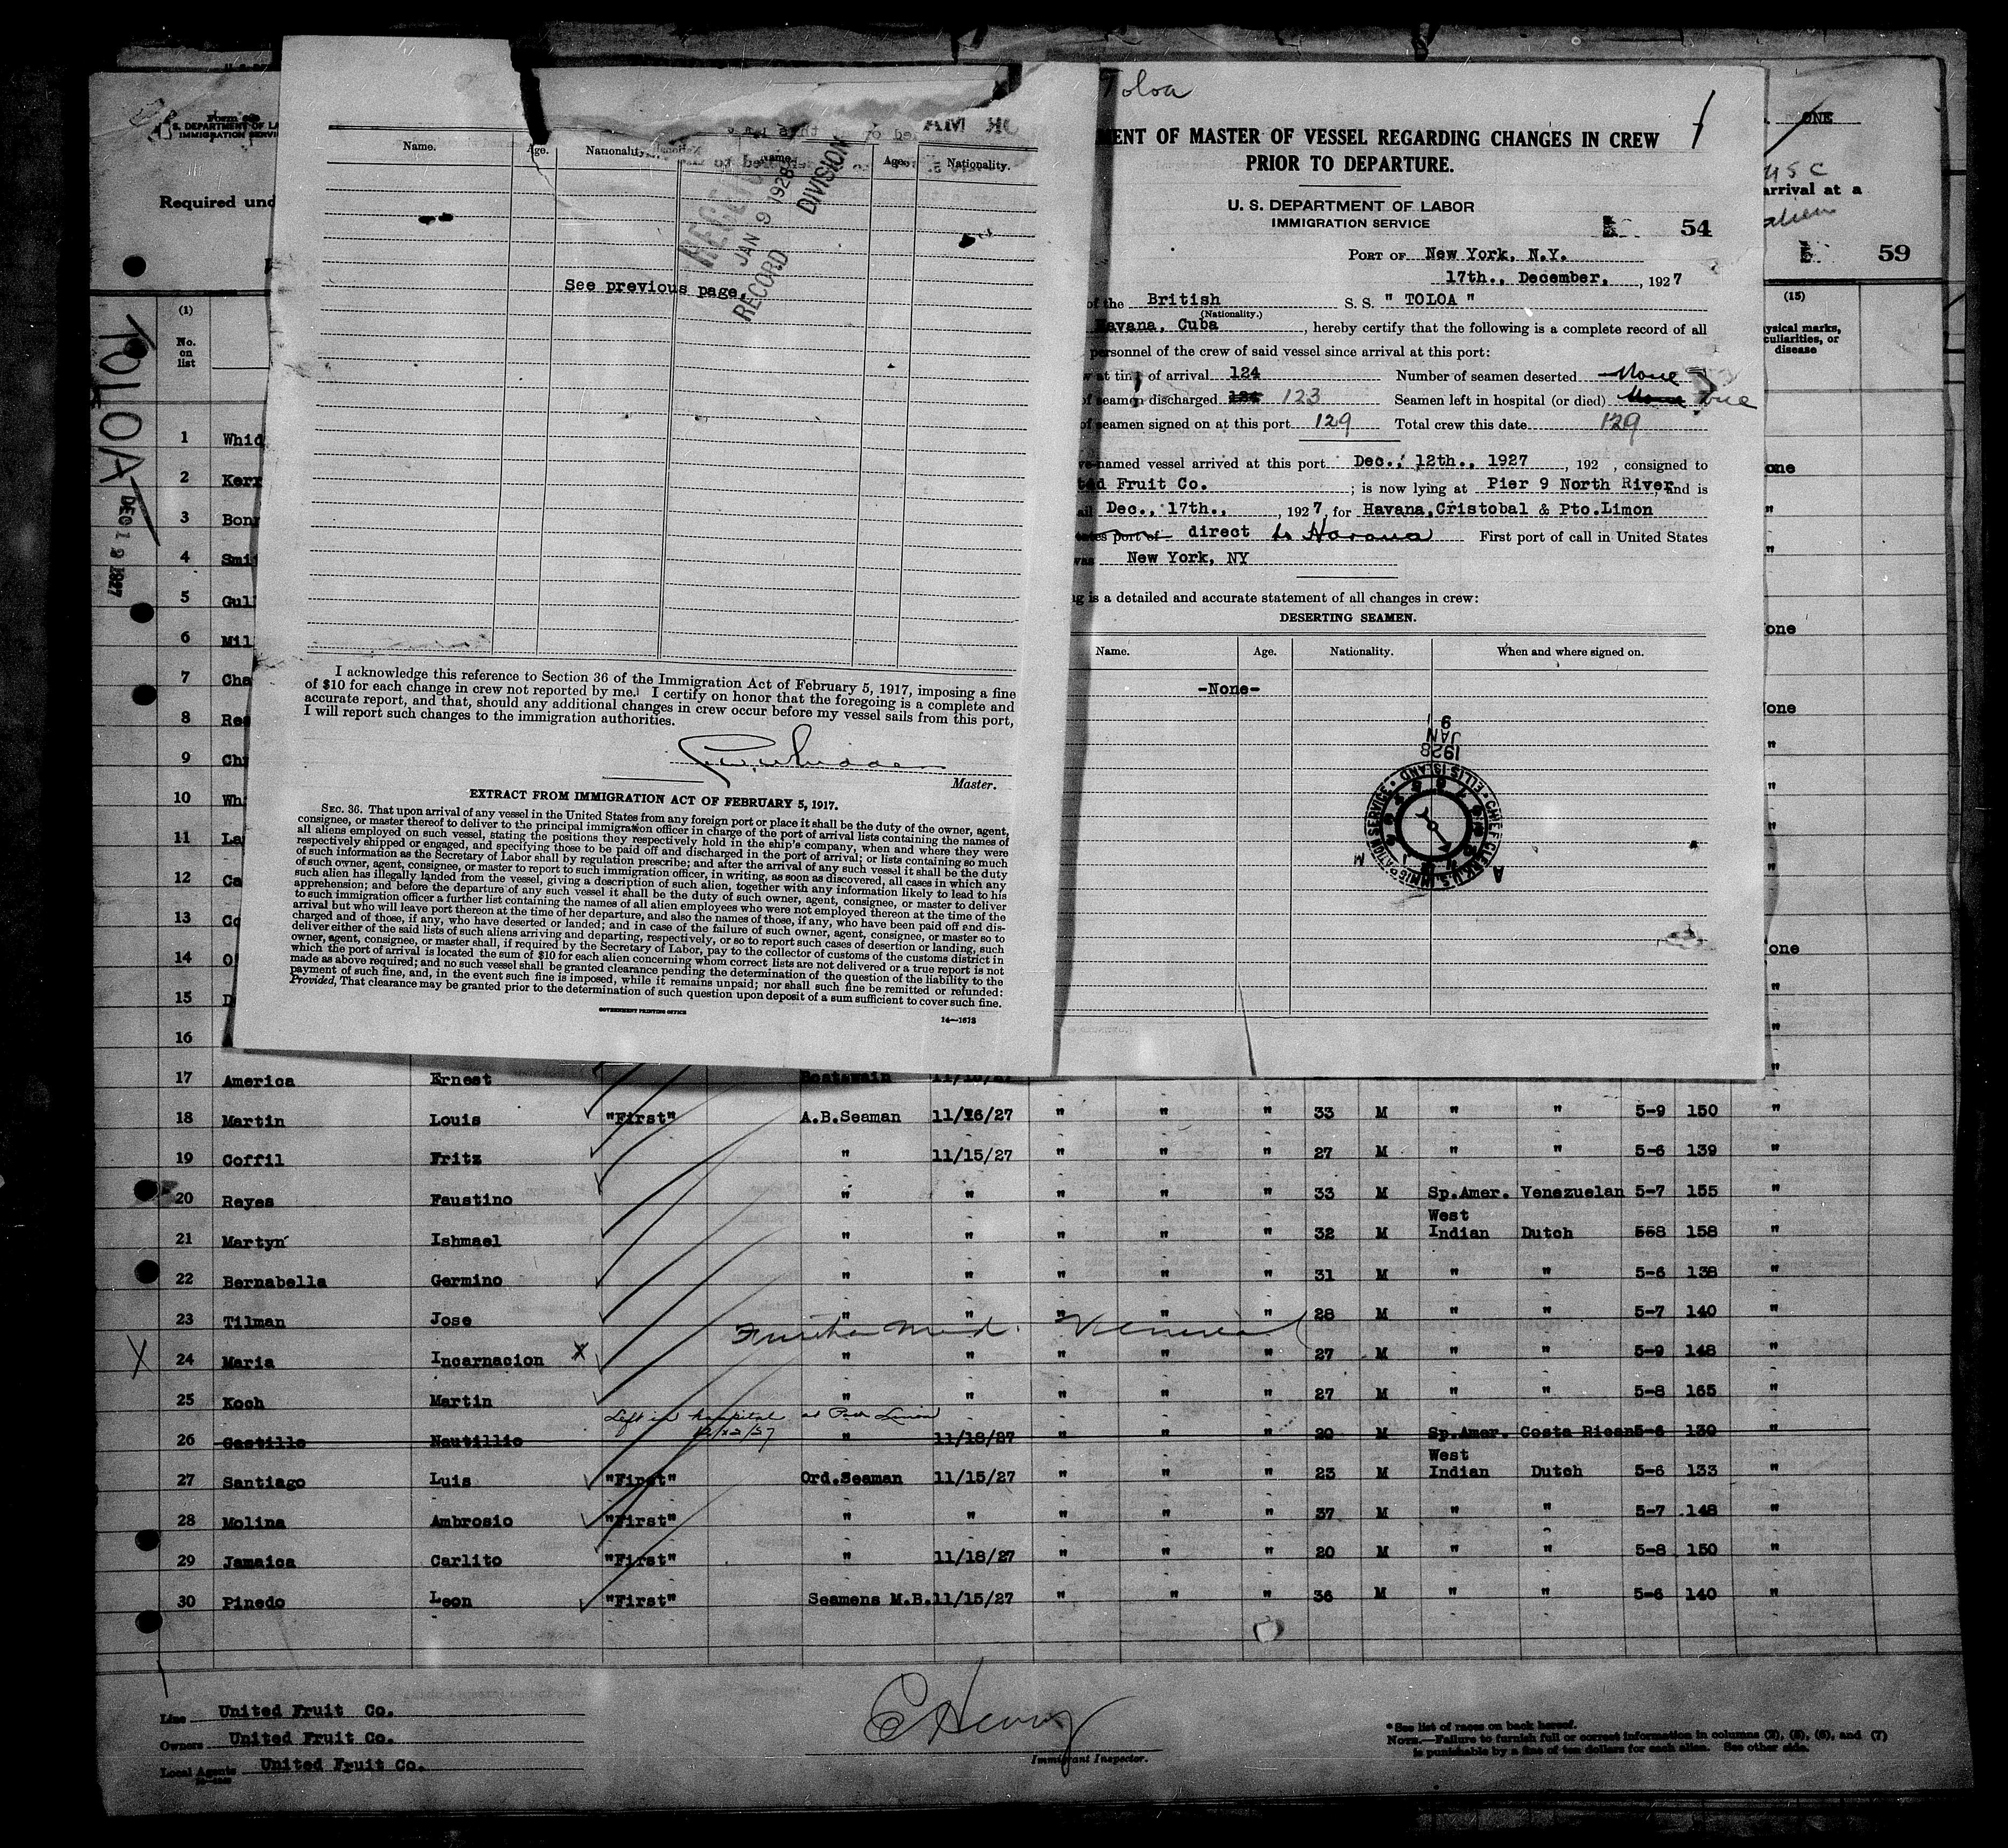 Toloa
MENT OF MASTER OF VESSEL REGARDING CHANGES IN CREW
PRIOR TO DEPARTURE.
U. S. DEPARTMENT OF LABOR
IMMIGRATION SERVICE
54
PORT OF New York, N.Y.
17th., December, , 1927
of the British S. S. " TOLOA "
(Nationality.)
Havana, Cuba , hereby certify that the following is a complete record of all
personnel of the crew of said vessel since arrival at this port:
at time of arrival 124 Number of seamen deserted None
of seamen discharged 123 Seamen left in hospital (or died) None one
of seamen signed on at this port 129 Total crew this date 129
named vessel arrived at this port Dec., 12th., 1927 , 192 , consigned to
ted Fruit Co. ; is now lying at Pier 9 North River, and is
ail Dec., 17th., , 1927, for Havana,Cristobal & Pto.Limon
port of direct to Havana First port of call in United States
was New York, NY
ng is a detailed and accurate statement of all changes in crew:
DESERTING SEAMEN.
Name. Age. Nationality. When and where signed on.
-None-
1928
JAN
9
CHIEF CLERK, U.S. IMMIGRATION SERVICE • ELLIS ISLAND •
Name. Age. Nationality. Name. Age. Nationality.
RECEIVED
JAN 9 1928
RECORD DIVISION
See previous page.
I acknowledge this reference to Section 36 of the Immigration Act of February 5, 1917, imposing a fine
of $10 for each change in crew not reported by me. I certify on honor that the foregoing is a complete and
accurate report, and that, should any additional changes in crew occur before my vessel sails from this port,
I will report such changes to the immigration authorities.
Master.
EXTRACT FROM IMMIGRATION ACT OF FEBRUARY 5, 1917.
SEC. 36. That upon arrival of any vessel in the United States from any foreign port or place it shall be the duty of the owner, agent,
consignee, or master thereof to deliver to the principal immigration officer in charge of the port of arrival lists containing the names of
all aliens employed on such vessel, stating the positions they respectively hold in the ship's company, when and where they were
respectively shipped or engaged, and specifying those to be paid off and discharged in the port of arrival; or lists containing so much
of such information as the Secretary of Labor shall by regulation prescribe; and after the arrival of any such vessel it shall be the duty
of such owner, agent, consignee, or master to report to such immigration officer, in writing, as soon as discovered, all cases in which any
such alien has illegally landed from the vessel, giving a description of such alien, together with any information likely to lead to his
apprehension; and before the departure of any such vessel it shall be the duty of such owner, agent, consignee, or master to deliver
to such immigration officer a further list containing the names of all alien employees who were not employed thereon at the time of the
arrival but who will leave port thereon at the time of her departure, and also the names of those, if any, who have been paid off and dis-
charged and of those, if any, who have deserted or landed; and in case of the failure of such owner, agent, consignee, or master so to
deliver either of the said lists of such aliens arriving and departing, respectively, or so to report such cases of desertion or landing, such
owner, agent, consignee, or master shall, if required by the Secretary of Labor, pay to the collector of customs of the customs district in
which the port of arrival is located the sum of $10 for each alien concerning whom correct lists are not delivered or a true report is not
made as above required; and no such vessel shall be granted clearance pending the determination of the question of the liability to the
payment of such fine, and, in the event such fine is imposed, while it remains unpaid; nor shall such fine be remitted or refunded:
Provided, That clearance may be granted prior to the determination of such question upon deposit of a sum sufficient to cover such fine.
GOVERNMENT PRINTING OFFICE
14—1678
Form
S. DEPARTMENT OF LA
IMMIGRATION SERVIC
Required und
ONE
arrival at a
59
TOLOA
DEC 19 1927
(1)
No.
on
list
(15)
ysical marks,
culiarities, or
disease
1 Whid
2 Kerr one
3 Bonn "
4 Smi "
5 Gul
6 Mil one
7 Cha
8 Re one
9 Ch "
10 Wh "
11 La "
12 Ca "
13 Co
14 O one
15 D "
16 "
17 America Ernest Boatswain "
18 Martin Louis "First" A.B.Seaman 11/16/27 " " " 33 M " " 5-9 150 "
19 Coffil Fritz " 11/15/27 " " " 27 M " " 5-6 139 "
20 Reyes Faustino " " " " " 33 M Sp.Amer. Venezuelan 5-7 155 "
21 Martyn Ishmael " " " " " 32 M West Indian Dutch 558 158 "
22 Bernabella Germino " " " " " 31 M " " 5-6 138 "
23 Tilman Jose " " " " " 28 M " " 5-7 140 "
Further Med. Venereal
24 Maria Incarnacion X " " " " " 27 M " " 5-9 148 "
25 Koch Martin " " " " " 27 M " " 5-8 165 "
Left in hospital at Port Limon
12/22/27
26 Castillo Nautillio " 11/18/27 " " " 20 M Sp.Amer. Costa Rican 5-6 130 "
27 Santiago Luis "First" Ord.Seaman 11/15/27 " " " 23 M West Indian Dutch 5-6 133 "
28 Molina Ambrosio "First" " " " " " 37 M " " 5-7 148 "
29 Jamaica Carlito "First" " 11/18/27 " " " 20 M " " 5-8 150 "
30 Pinedo Leon "First" Seamens M.B. 11/15/27 " " " 36 M " " 5-6 140 "
Line United Fruit Co.
Owners United Fruit Co.
Local Agents United Fruit Co.
E Henry
Immigrant Inspector.
*See list of races on back hereof.
NOTE.—Failure to furnish full or correct information in columns (2), (5), (6), and (7)
is punishable by a fine of ten dollars for each alien. See other side.